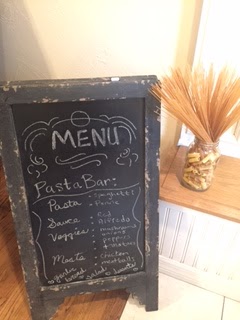 MENU
Pasta Bar:
Pasta - Spaghetti
- Penne
Sauce - Red
- Alfredo
Veggies - mushrooms
- onions
- peppers
- tomatoes
Meats - Chicken
- meatballs
garden salad
bread